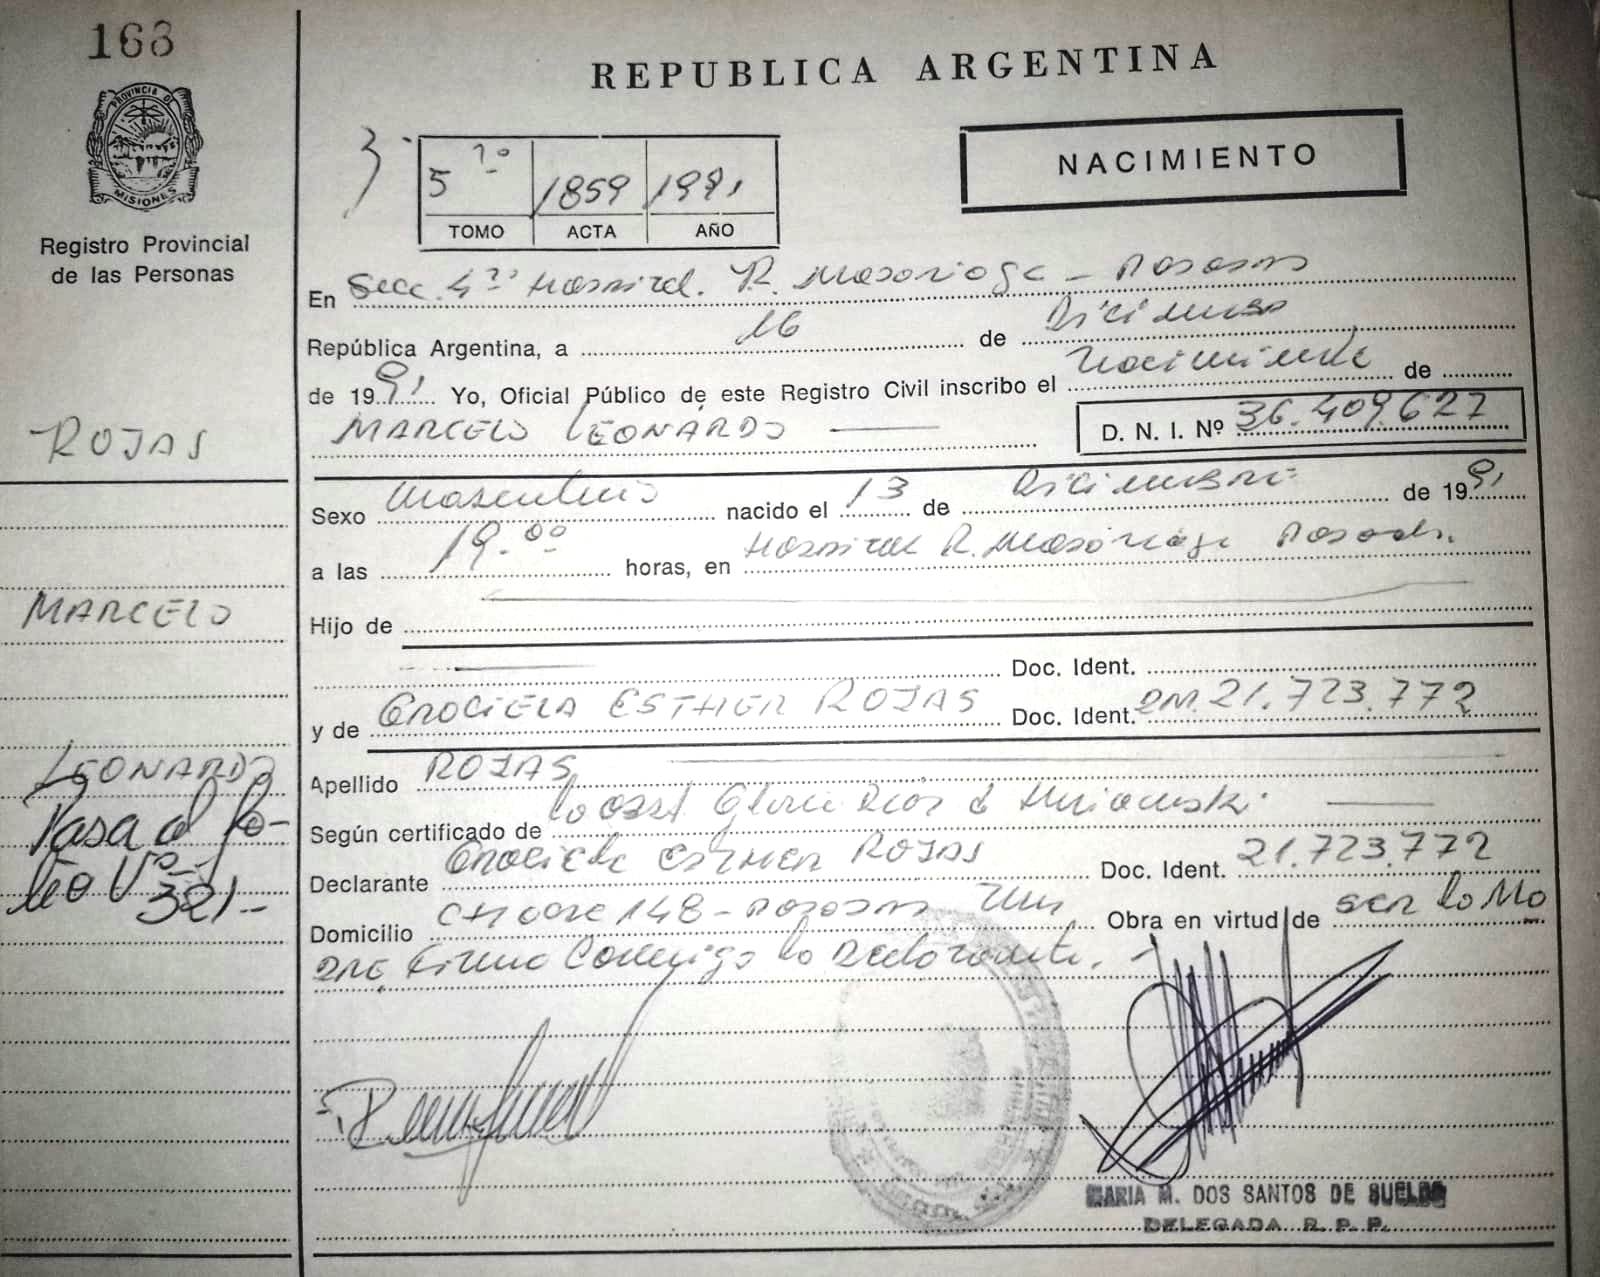 168
REPUBLICA ARGENTINA
PROVINCIA DE
MISIONES
Registro Provincial
de las Personas
NACIMIENTO
5 1859 1991
TOMO ACTA AÑO
En Secc. 4ª Hospital. R. Madariaga - Posadas
República Argentina, a 16 de Diciembre
de 1991 Yo, Oficial Público de este Registro Civil inscribo el Nacimiento de
MARCELO LEONARDO
D. N. I. Nº 36.409.627
ROJAS
Sexo Masculino nacido el 13 de Diciembre de 1991
a las 19.00 horas, en Hospital R. Madariaga Posadas.
MARCELO
Hijo de
Doc. Ident.
y de GRACIELA ESTHER ROJAS Doc. Ident. 21.723.772
LEONARDO
Apellido ROJAS
Pasa al fo-
lio Vto
321-
Según certificado de la Obst. Gloria de
Declarante Graciela Esther ROJAS Doc. Ident. 21.723.772
Domicilio 148 - Posadas Obra en virtud de ser la Ma
dre Firma Conmigo la Declarante.
MARIA M. DOS SANTOS DE SUELDO
DELEGADA R. P. P.